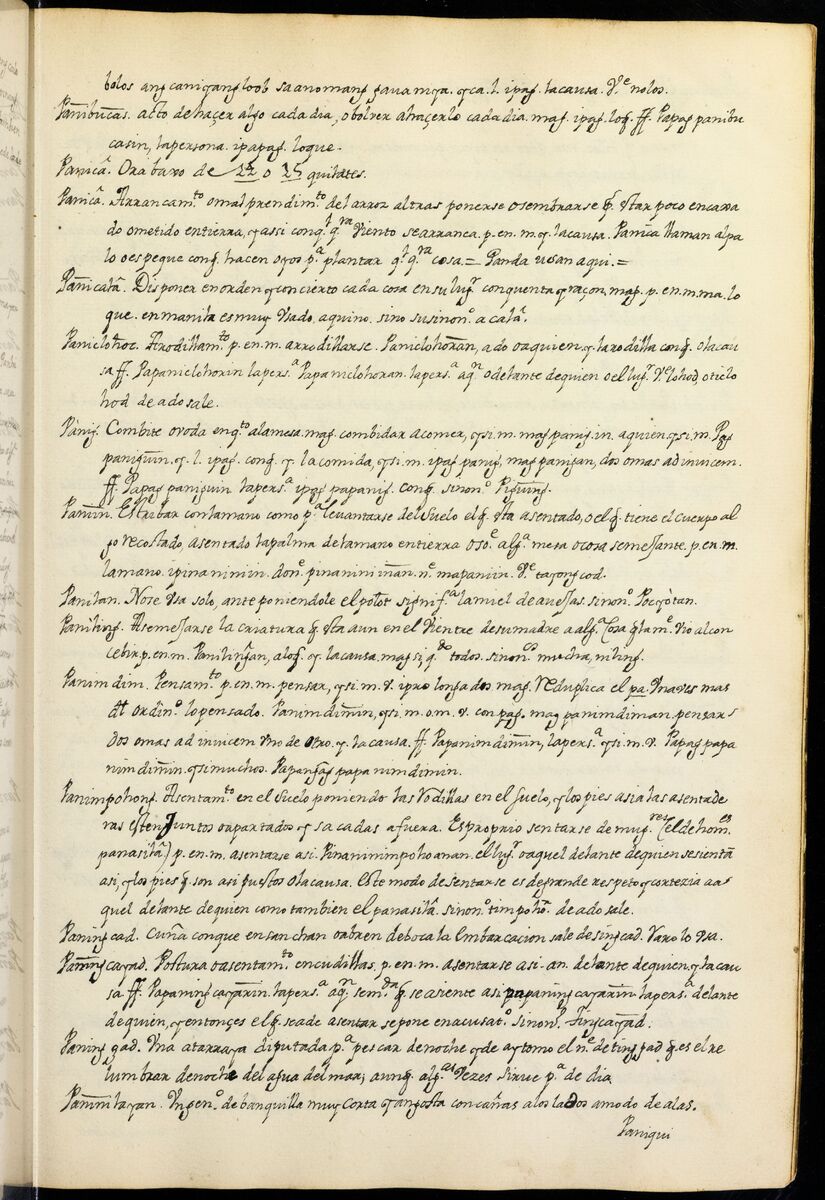 bolos ang canigang loob sa anomang gaua mȷa. y ca. l. ipag. la causa. V.e nolos.
Panibucas. acto de haçer algo cada dia, o bolver a haçerlo cada dia. mag. ipag. loq. ff. Papag panibu
casin, la persona. ipapag. lo que.
Panica. Oro baxo de 22 o 25 quilates.
Panica. Arrancam.to o mal prendim.to del arroz al tras ponerse o sembrarse q. star poco encaxa
do o metido en tierra, y assi con q.l q.ra viento se arranca. p. en. m. y la causa. Panica llaman al pa
lo o espeque con q. hacen oyos p.a plantar q.l q.ra cosa = Panda usan aqui. =
Panicala. Disponer en orden y concierto cada cosa en su lug.r con quenta y raçon, mag. p. en. m. ma. lo
que. en manila es muy usado, aqui no. sino su sinon.o a cala.
Paniclohor. Arodillam.to p. en. m. arrodillarse. Paniclohoran, ado o a quien, y la rodilla con q. o la cau
sa ff. Papaniclohorin la pers.a Papaniclohoran. la pers.a a q.n o delante de quien o el lug.r V.e lohod, o ticlo
hod de ado sale.
Panig. Combite o voda en q.to a la mesa. mag. combidar a comer, y si. m. mag panig. in. a quien, y si. m. Pag
paniguin. y. l. ipag. con q. y. la comida, y si. m. ipag panig, mag panigan, dos o mas ad invicem.
ff. Papag paniguin la pers.a ipag papanig. con q. sinon.o Piguing.
Paniin. Estribar con la mano como p.a levantarse del suelo el q. sta asentado, o el q. tiene el cuerpo al
go recostado, asentado la palma de la mano en tierra o so.e alg.a mesa o cosa semejante. p. en. m.
la mano. ipinanimin. don.e pinaniniinan. n.e mapaniin. V.e tayongcod.
Panilan. No se usa solo, ante poniendole el polot signif.a la miel de avejas. sinon.o Pocyotan.
Paniling. Asemejarse la criatura q. sta aun en el vientre de su madre a alg.a cosa q la m.e vio al con
cebir, p. en. m. Panilingan, a lo q. y la causa, mag si, q.do todos. sinon.os mucha, niling.
Panimdim. Pensam.to p. en. m. pensar, y si. m. V. ipro lonfados mag. Reduplica el pa. una ves mas
dt ordin.o lo pensado. Panimdimin, y si. m. o. m. V. con pag. mag panimdiman pensar
dos o mas ad invicem uno de otro. y la causa. ff. Papanimdimin, la pers.a y si. m. V. Papag papa
nimdimin. y si muchos. Papangag papa nimdimin.
Panimpohong. Asentam.to en el suelo poniendo las rodillas en el suelo, y los pies asia las asentade
ras esten Juntos o apartados y sacadas a fuera. Es proprio sentarse de mug.res (el de hom.es
panasila) p. en. m. asentarse asi. Pinanimimpohoanan. el lug.r o aquel delante de quien se sienta
asi, y los pies q. son asi puestos o la causa. Este modo de sentarse es de grande respeto y cortezia a a
quel delante de quien como tambien el panasila. sinon.o timpoho. de ado sale.
Paningcad. Cuña con que ensanchan o abren de boca la Embarcacion sale de singcad. Raro lo usa.
Paningcayad. Postura o asentam.to en cudillas, p. en. m. asentarse asi. an. delante de quien, y la cau
sa ff. Papaningcayarin. la pers.a a q.n sem.da q. se asiente asi papaningcayarin la pers.a delante
de quien, y entonçes el q. se ade asentar se pone en acusat.o sinon.o Tingcayad.
Paninggad. Una atarraya diputada p.a pescar de noche y de ay tomo el n.e de tinggad q. es el re
lumbrar de noche del agua del mar; aunq. alg.as vezes sirve p.a de dia
Panimilayan. Ingen.o de banquilla muy corta y angosta con cañas a los lados a modo de alas.
Paniqui